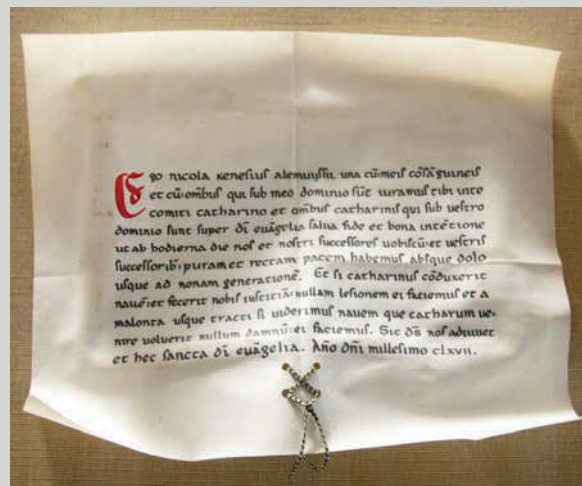 Ego nicola kenesius alemuissii una cū meis cōsāguineis
et cū omībus qui sub meo dominio sūt iuramus tibi inte
comiti catharino et omībus catharinis qui sub uestro
dominio sunt super dī euāgelia salua fide et bona intētione
ut ab hodierna die nos et nostri successores uobiscū et uestris
successorib: puram et rectam pacem habemus absque dolo
usque ad nonam generationē. Et si catharinus cōduxerit
nauē: et fecerit nobis iusticiā: nullam lesionem ei faciemus et a
malonta usque tracti si uiderimus nauem que catharum ue-
nire uoluerit nullum damnū: ei faciemus. Sic dš nos adiuuet
et hec sancta dī euāgelia. Año dñi millesimo clxvii.